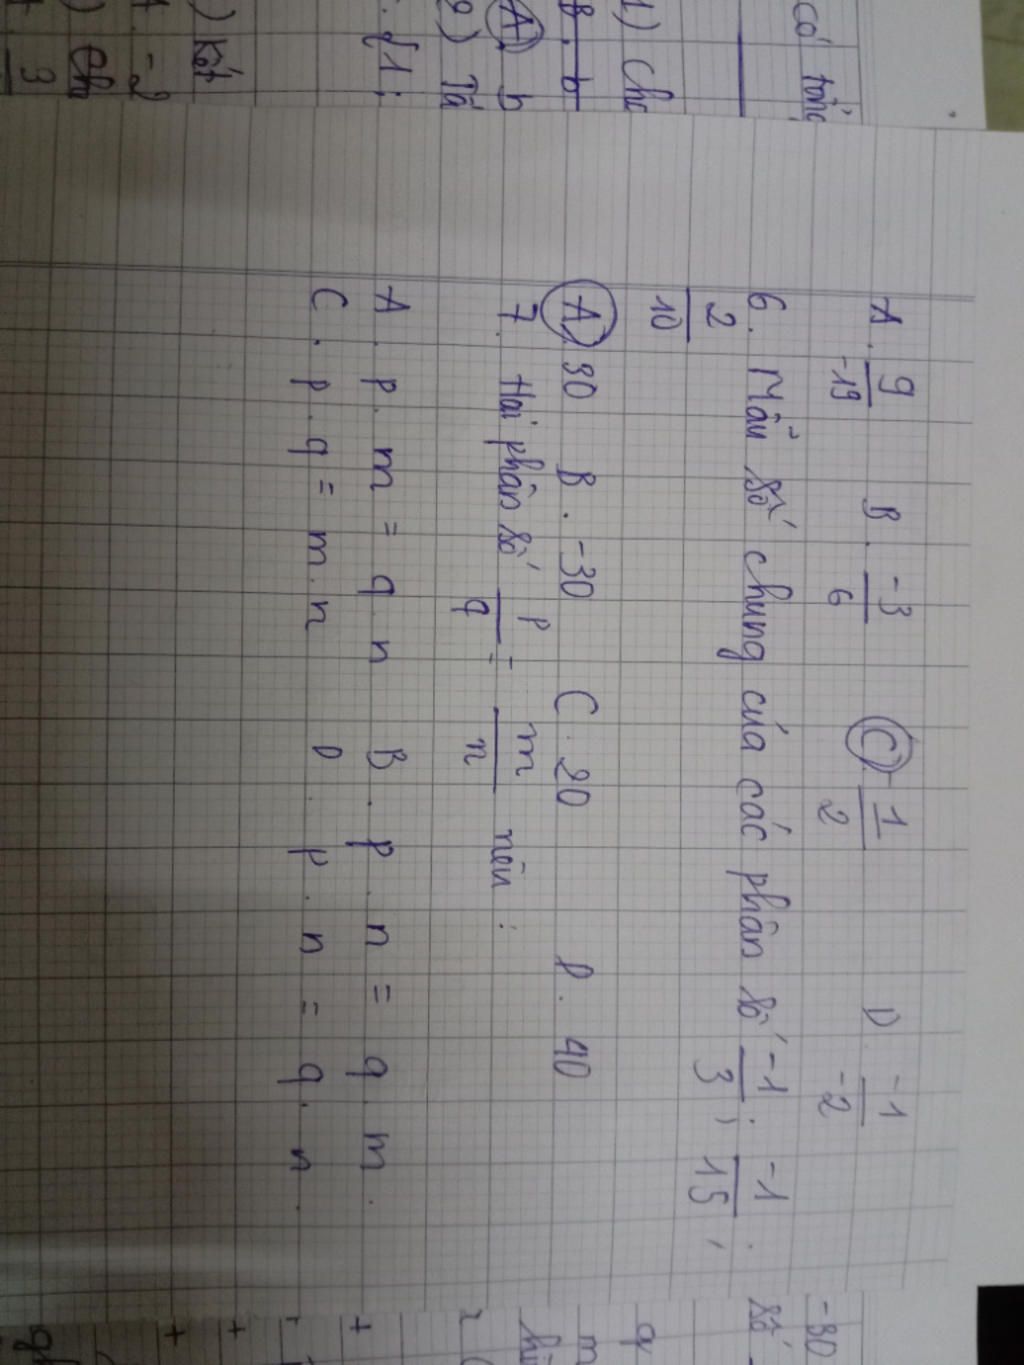 có tổng
1) Cho
B. b
A. b
{1;
A. 9/-19 B. -3/6 C. 1/2 D. -1/-2
6. Mẫu số chung của các phân số -1/3; -1/15;
2/10
A. 30 B. -30 C. 20 D. 40
7. Hai phân số p/q = m/n nếu:
A. p. m = q n B. p. n = q. m.
C. p. q = m. n D. p. n = q. n.
-30
số